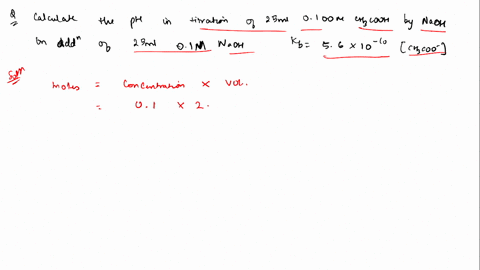 Q Calculate the pH in titration of 25ml 0.100M CH3COOH by NaOH
on addn of 25ml 0.1M NaOH Kb = 5.6 × 10^-10 [CH3COO-]
Soln
moles = concentration × vol.
= 0.1 × 2.